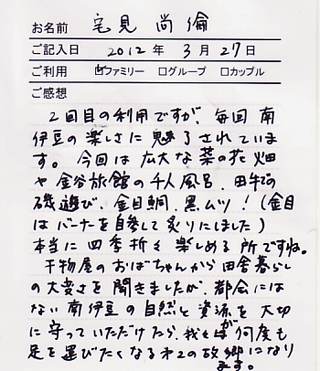 お名前 宅見 尚倫
ご記入日 2012年 3月 27日
ご利用 ☑ファミリー □グループ □カップル
ご感想
2回目の利用ですが、毎回 南
伊豆の楽しさに魅了されていま
す。今回は 広大な菜の花畑
や 金谷旅館の千人風呂、田牛での
磯遊び、金目鯛、黒ムツ！(金目
はバーナーを自参して炙りにしました)
本当に 四季折々楽しめる 所ですね。
干物屋のおばちゃんから田舎暮らし
の大変さを聞きましたが、都会には
ない南伊豆の自然と資源を大切
に守っていただけたら、我々が何度も
足を運びたくなる第2の故郷になり
ます。